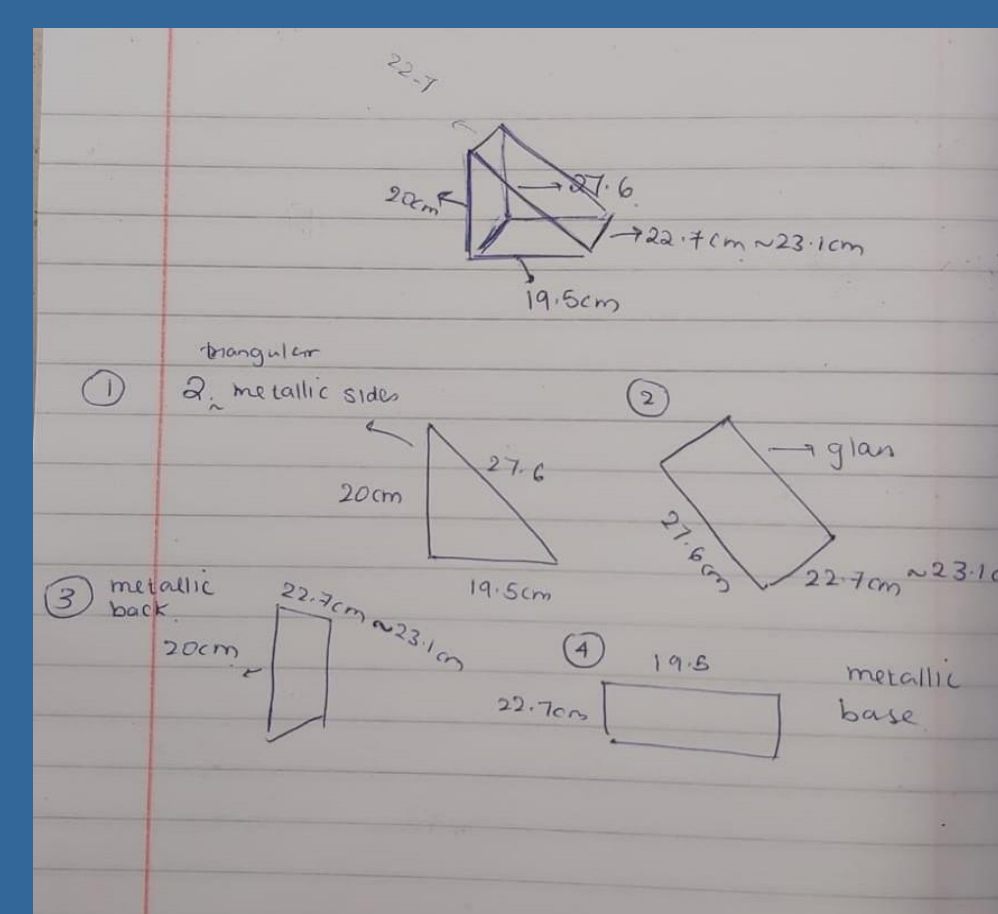 22.7
20cm
27.6
22.7cm ~23.1cm
19.5cm
triangular
① 2 metallic sides
27.6
20cm
19.5cm
②
glan
27.6cm
22.7cm ~23.1c
③ metallic
back.
22.7cm ~23.1cm
20cm
④
19.5
22.7cm
metallic
base